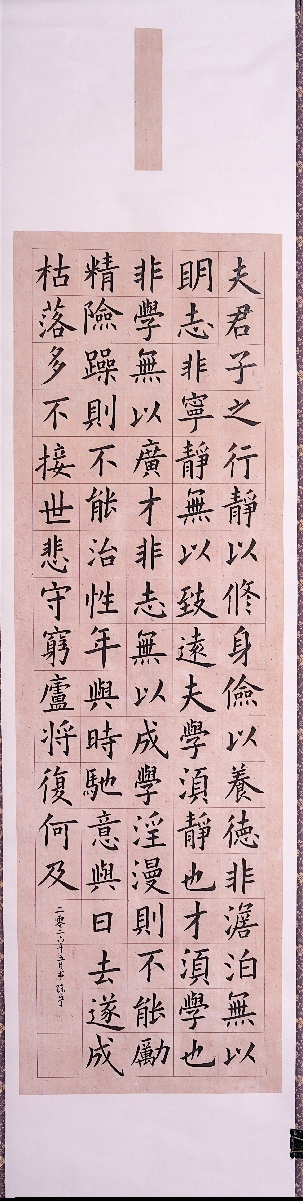 夫君子之行靜以修身儉以養德非澹泊無以
明志非寧靜無以致遠夫學須靜也才須學也
非學無以廣才非志無以成學淫漫則不能勵
精險躁則不能治性年與時馳意與日去遂成
枯落多不接世悲守窮廬將復何及
二零二六年五月